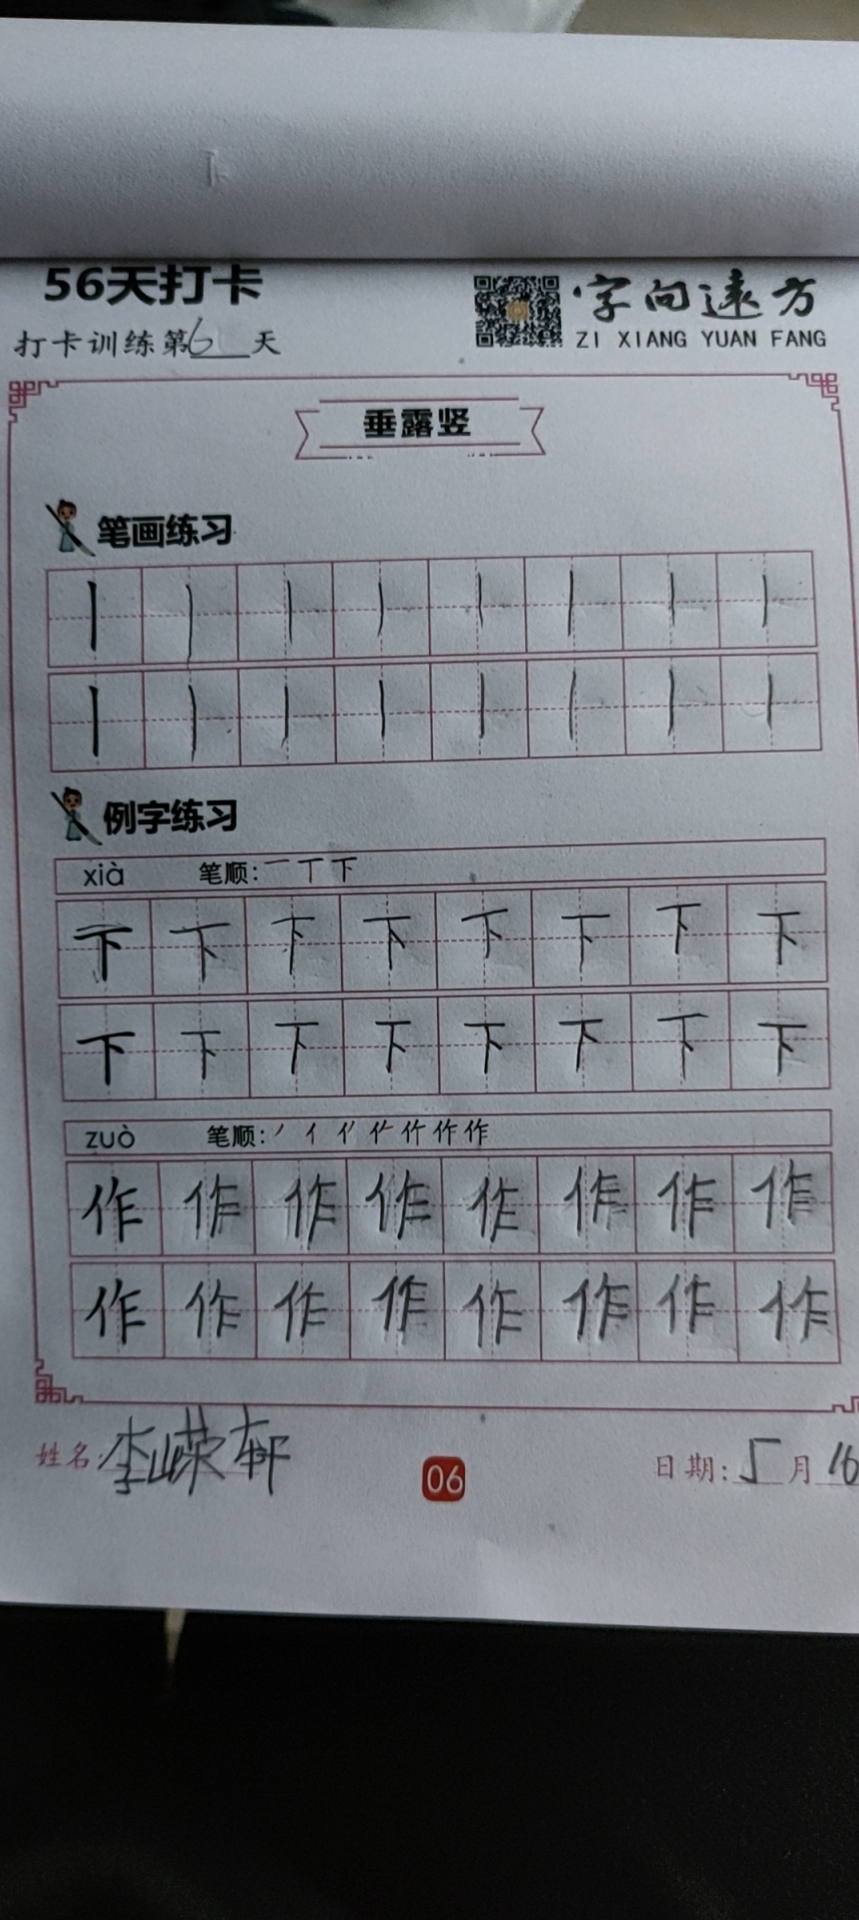 56天打卡
字向远方
打卡训练第6天
ZI XIANG YUAN FANG
垂露竖
笔画练习
丨丨丨丨丨丨丨丨
丨丨丨丨丨丨丨丨
例字练习
xià 笔顺:一丅下
下下下下下下下下
下下下下下下下下
zuò 笔顺:丿亻亻𠂉作作作
作作作作作作作作
作作作作作作作作
姓名:李嵘轩
06
日期:5月16